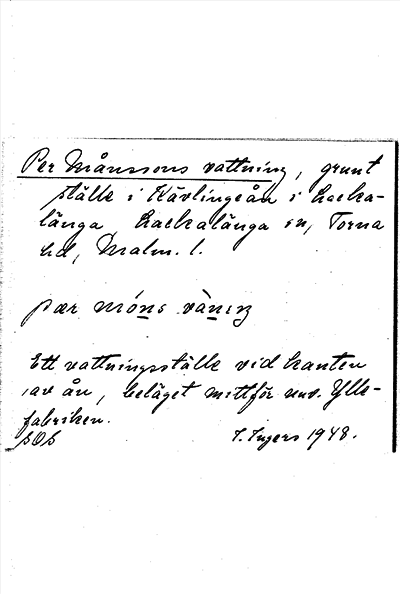 Per Månssons vattning, grunt
ställe i Kävlingeån i Lacka-
länga, Lackalänga sn, Torna
hd, Malm. l.
pær móns vàniŋ
Ett vattningsställe vid kanten
av ån, beläget mittför nuv. Ylle-
fabriken.
SOS I. Ingers 1948.